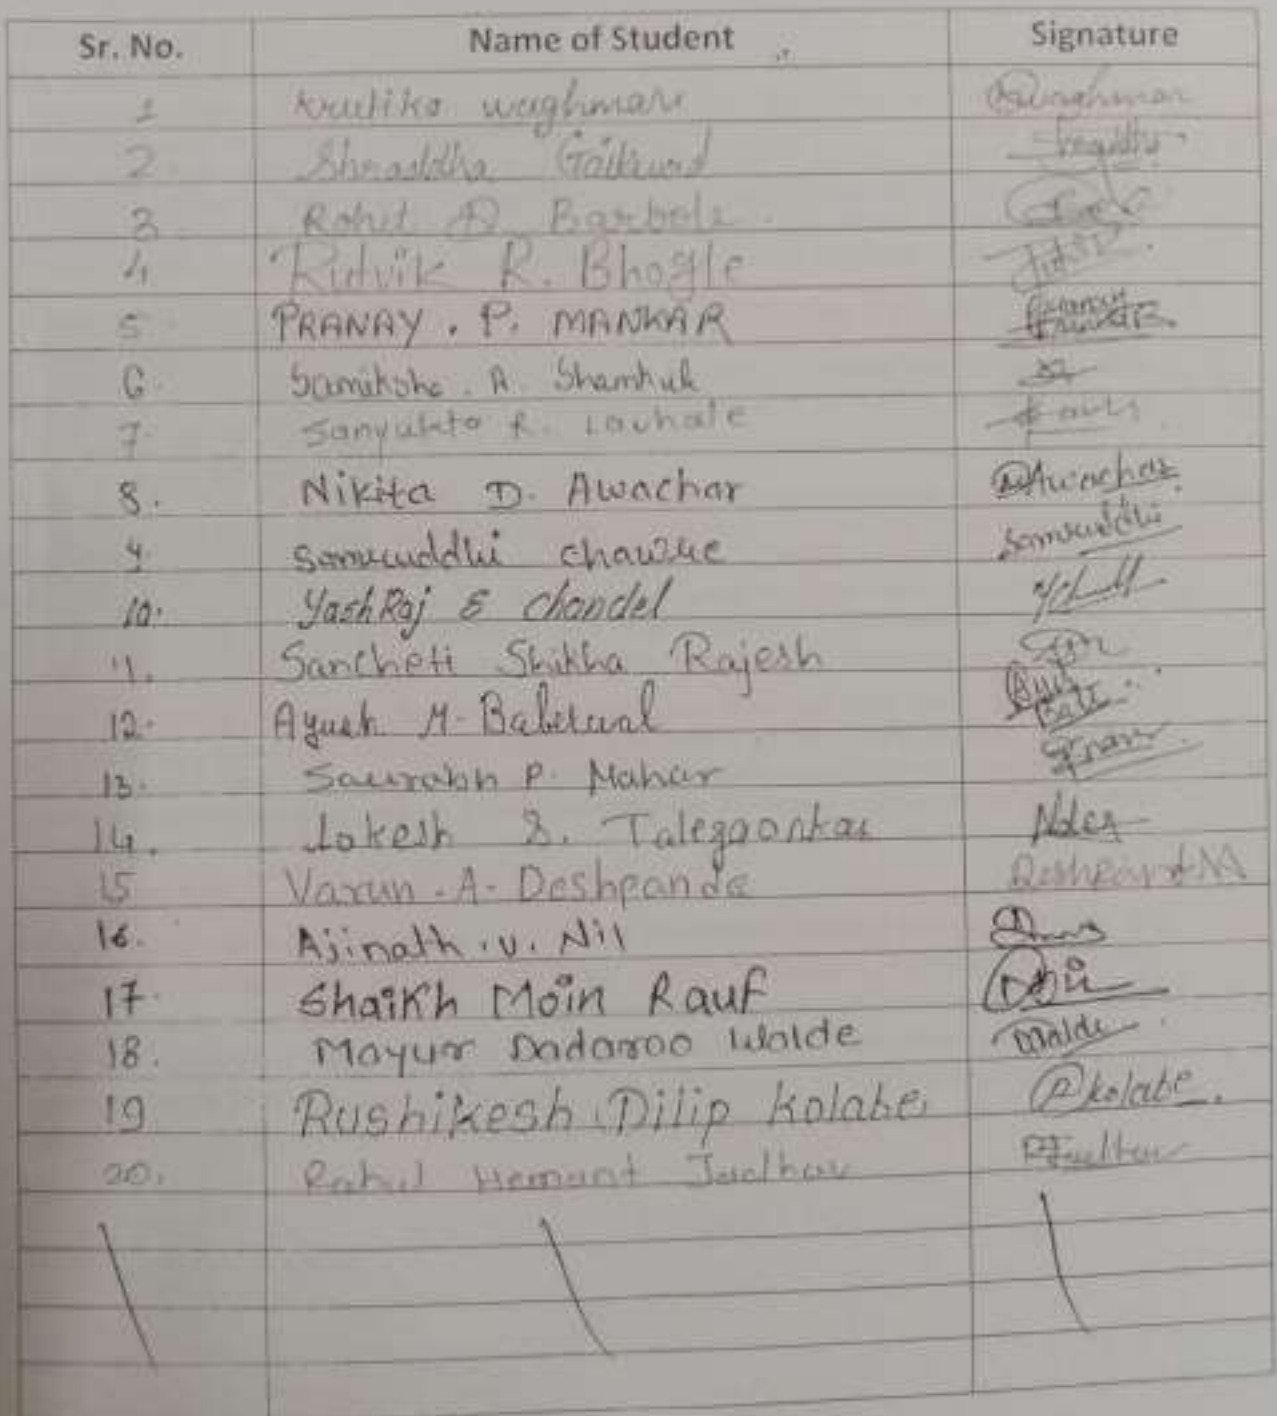 Sr. No. Name of Student Signature
1 Krutika waghmare Kwaghmar
2 Shraddha Gaikwad Shraddha
3 Rohit D. Barbole
4 Rutvik R. Bhogle
5 PRANAY . P. MANKAR
6 Samiksha . A. Shamkuk
7. Sanyukta R. Lavhale
8. Nikita D. Awachar NAwachar
9. Samruddhi chawre Samruddhi
10. YashRaj S Chandel
11. Sancheti Shikha Rajesh
12. Ayush M. Babelwal
13. Saurabh P. Mahar
14. Lokesh S. Talegaonkar
15 Varun . A. Deshpande
16. Ajinath . v. Nil
17. Shaikh Moin Rauf
18. Mayur Dadarao Walde Walde
19 Rushikesh Dilip Kolabe. Rkolabe.
20. Rahul Hemant Jadhav